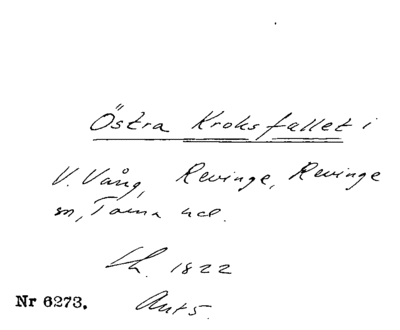 Östra Kroksfallet i
V. Vång, Revinge, Revinge
sn, Torna hd.
Lh. 1822
Nr 6273.
Ant 5.